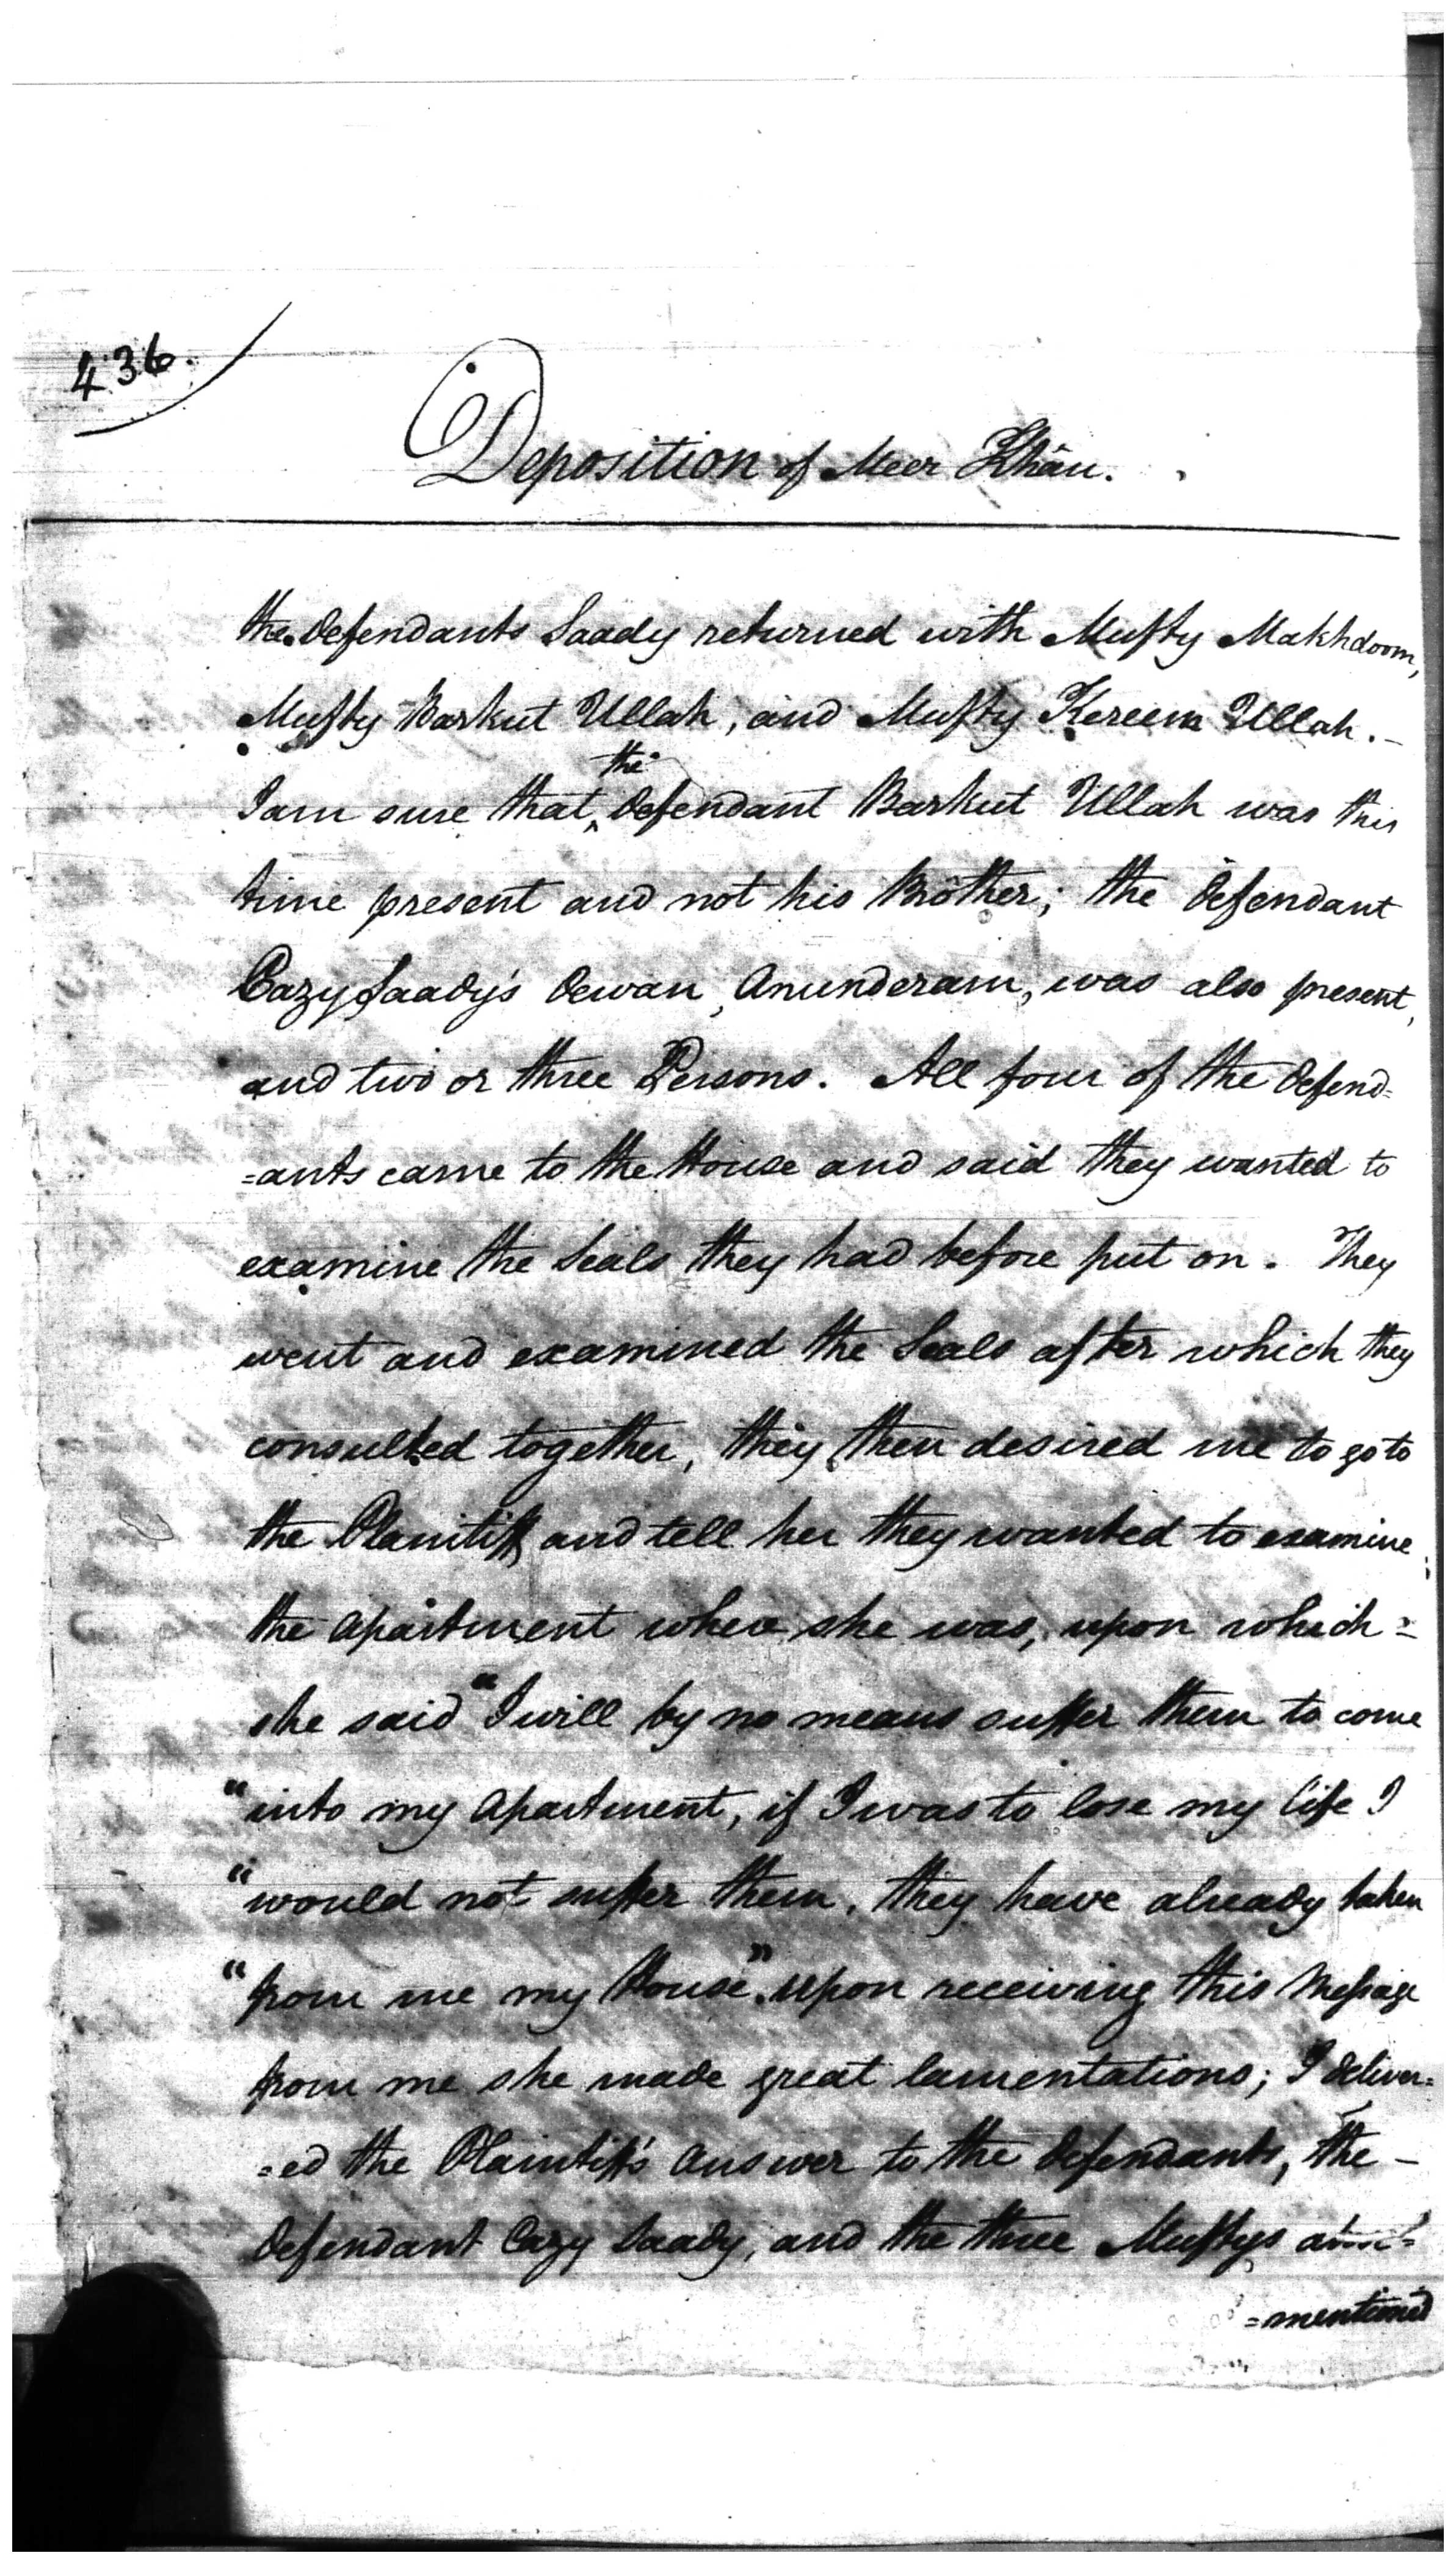 436.
Deposition of Meer Khân.
the Defendants Saady returned with Mufty Makhdoom,
Mufty Barkut Ullah, and Mufty Kereem Ullah.-
the
I am sure that ‸ Defendant Barkut Ullah was this
time present and not his Brother; the Defendant
Cazy Saady's Dewan, Anunderam, was also present,
and two or three Persons. All four of the Defend-
=ants came to the House and said they wanted to
examine the Seals they had before put on. They
went and examined the Seals after which they
consulted together, they then desired me to go to
the Planitiff and tell her they wanted to examine
the apartment where she was, upon which=
she said "I will by no means suffer them to come
"into my apartment, if I was to lose my life I
"would not suffer them. they have already taken
"from me my House". upon receiving this Message
from me she made great lamentations; I deliver=
=ed the Plaintiff's answer to the Defendants, the -
Defendant Cazy Saady, and the three Muftys
=mentioned